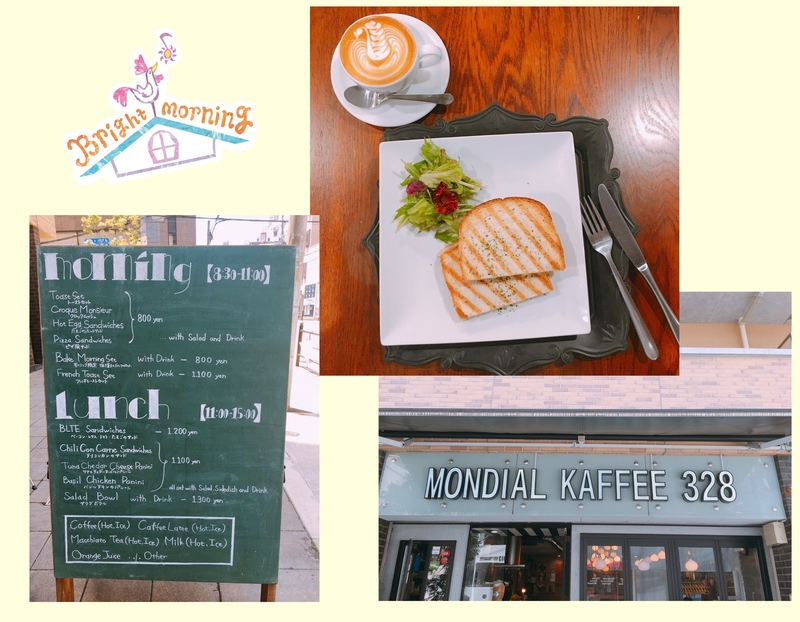 Bright morning
morning 【8:30-11:00】
Toast Set
トーストセット
Croque Monsieur
クロックムッシュ
Hot Egg Sandwiches
Pizza Sandwiches
800 yen
with Salad and Drink
Bake Morning Set with Drink - 800 yen
French Toast Set with Drink - 1.100 yen
lunch 【11:00-15:00】
BLTE Sandwiches - 1.200 yen
Chili Con Carne Sandwiches
Tuna Chedar Cheese Panini
Basil Chicken Panini
1.100 yen
all set with Salad, Sidedish and Drink
Salad Bowl with Drink - 1300 yen
サラダボウル
Coffee (Hot.Ice) Caffe Latee (Hot.Ice)
Macchiato Tea (Hot.Ice) Milk (Hot.Ice)
Orange Juice ../. Other
MONDIAL KAFFEE 328